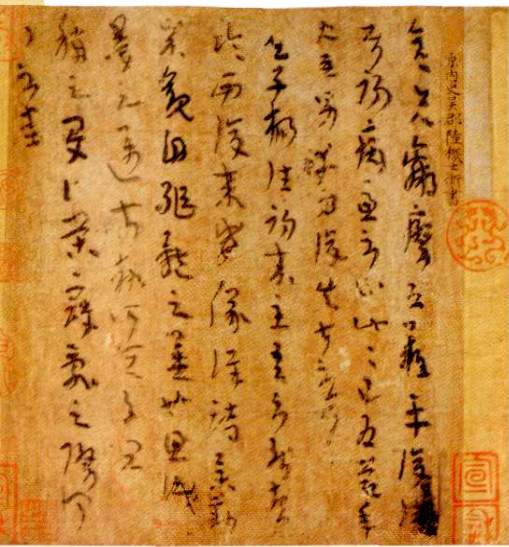 平原內史吳郡陸機士衡書
彦先羸瘵恐難平復往屬
初病慮不止此此已為慶承
使唯男幸為復失前憂耳
子楊往初來主吾不能盡
臨西復來威儀詳跱舉動
成觀自軀體之美也思識
量之邁前執所恒有宜
稱之夏伯榮寇亂之際聞
問不悉
宣和